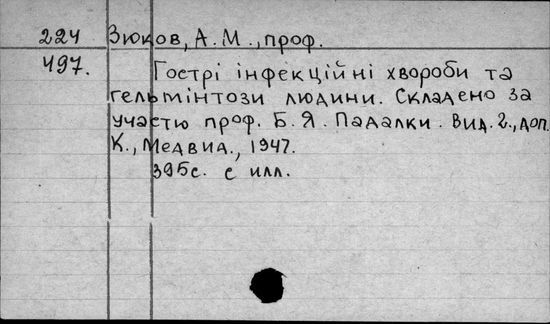 224 Зюков, А. М., проф.
497. Гострі інфекційні хвороби та
гельмінтози людини. Складено за
участю проф. Б. Я. Падалки. Вид. 2., доп.
К., Медвид., 1947.
395с. с илл.